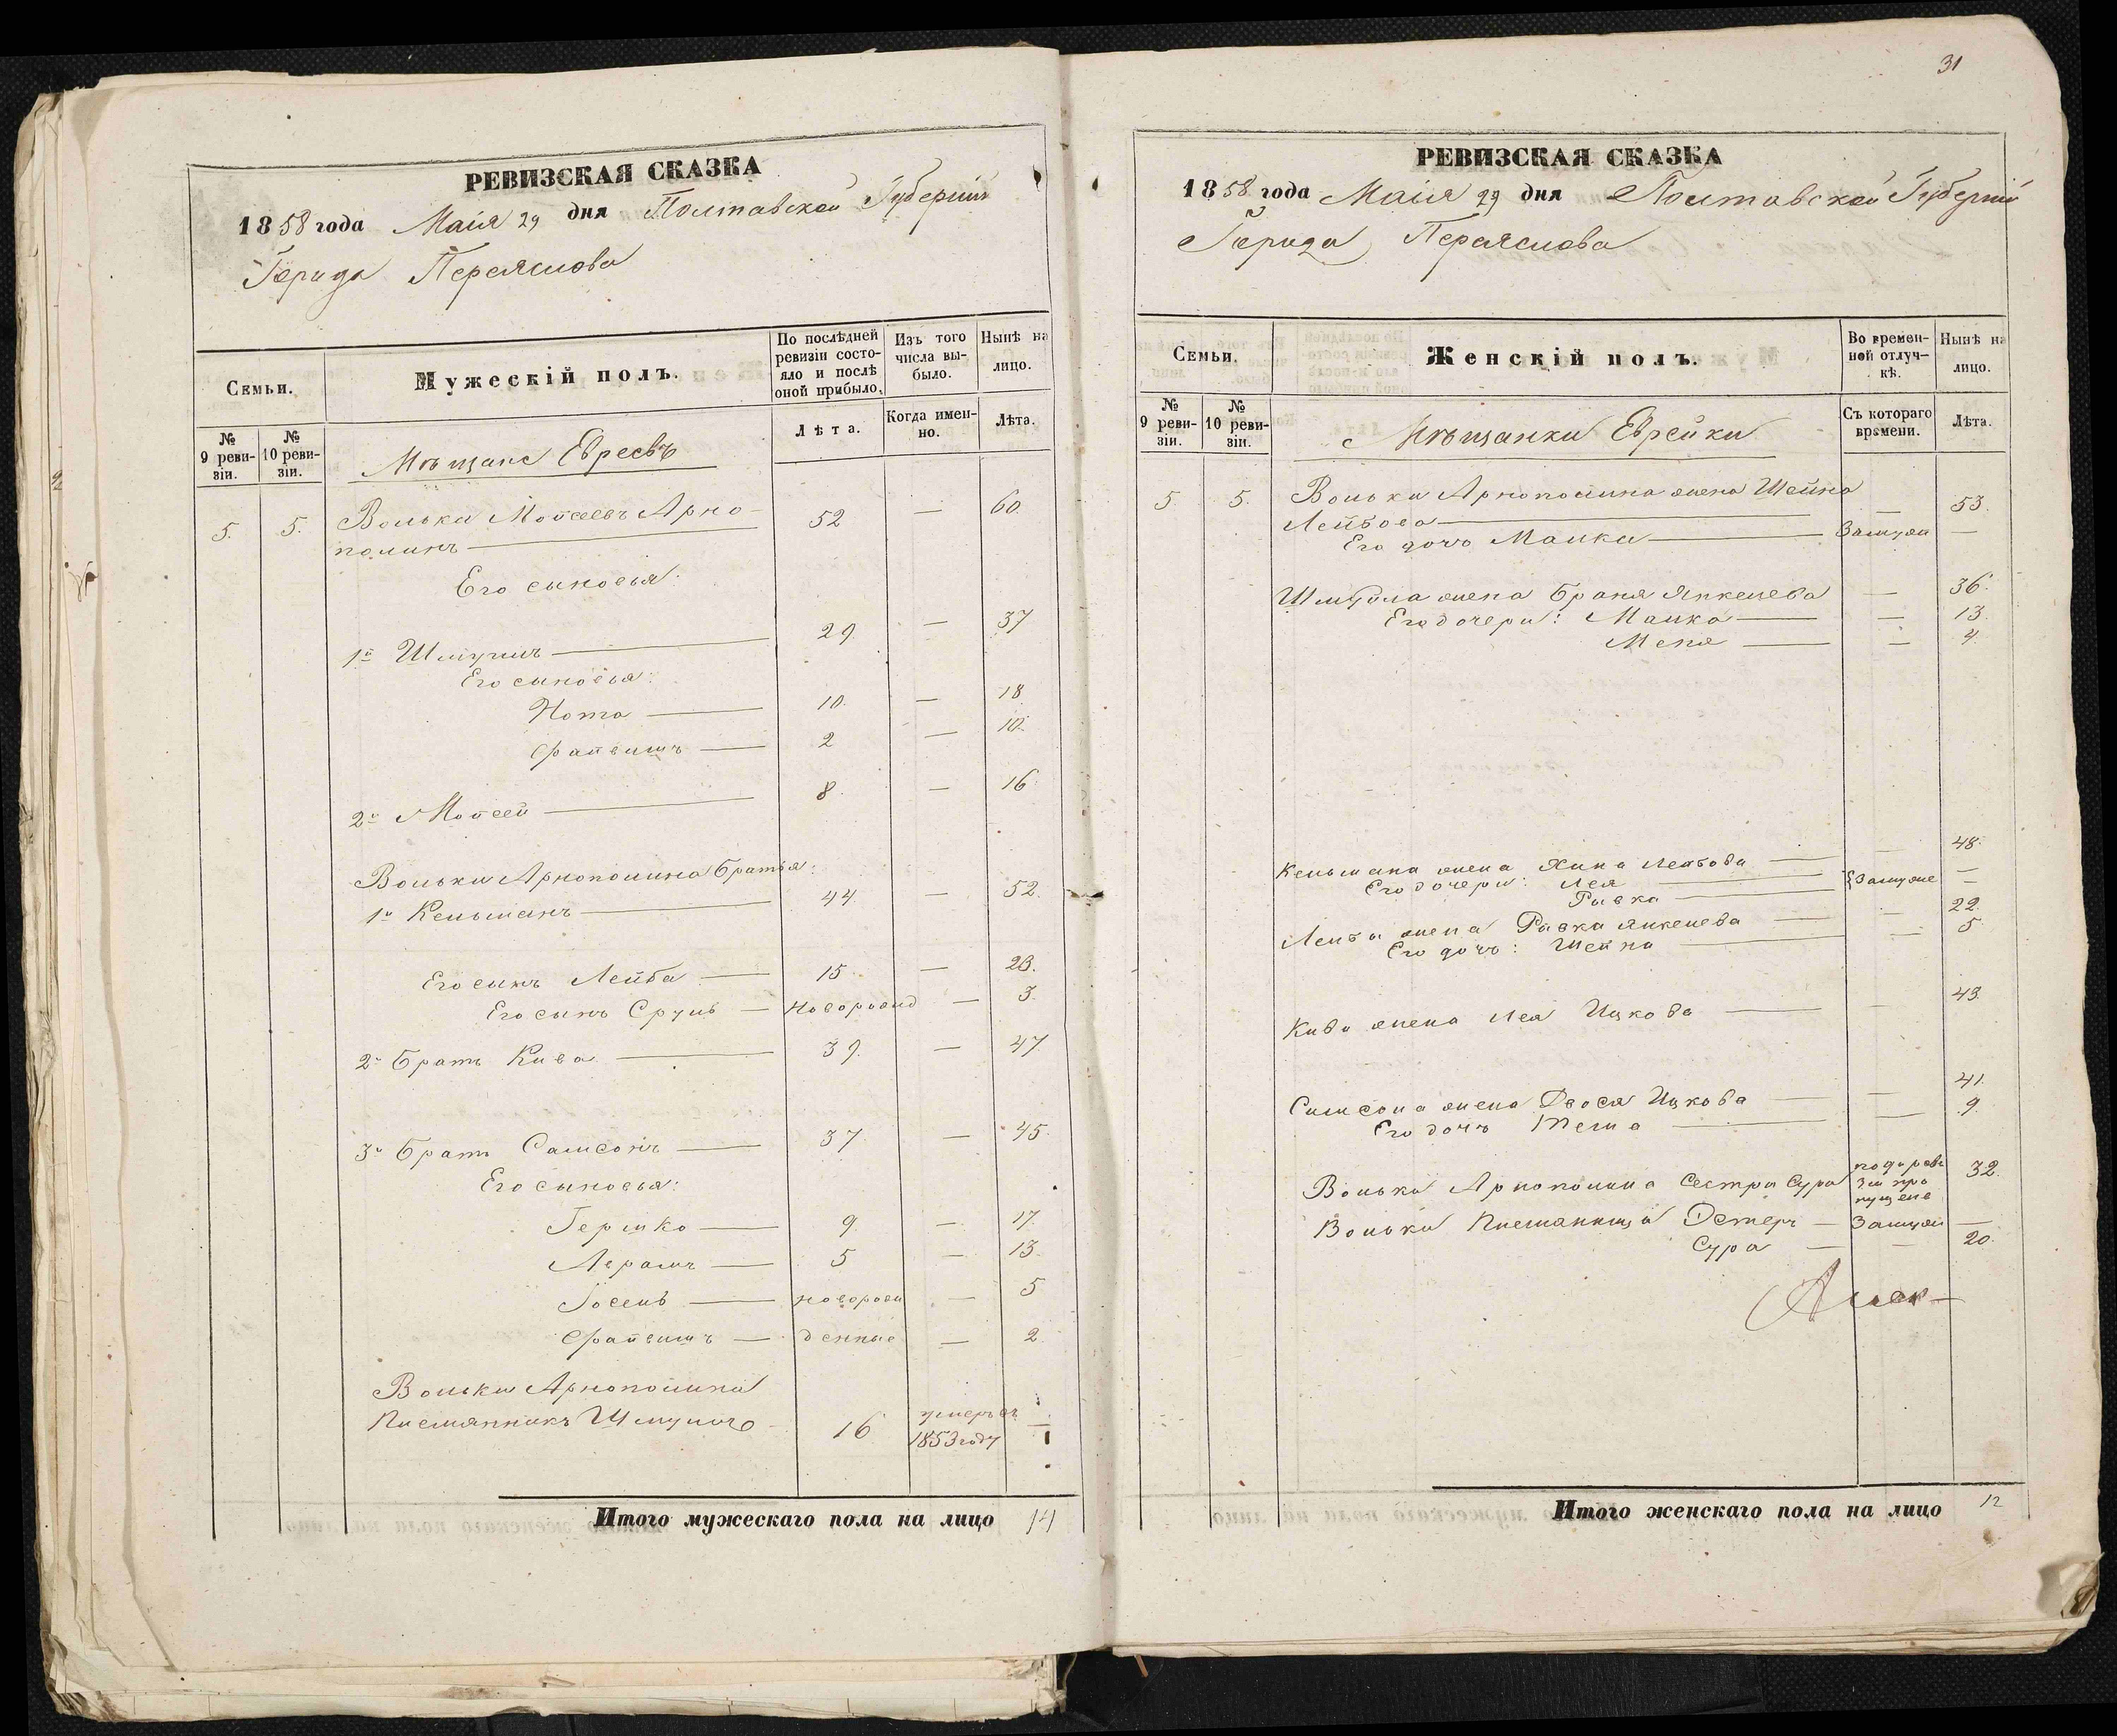 РЕВИЗСКАЯ СКАЗКА
1858 года Маія 29 дня Полтавской Губерніи
Города Переяслова
Семьи.
Мужескій полъ.
По послѣдней ревизіи состояло и послѣ оной прибыло.
Изъ того числа выбыло.
Нынѣ на лицо.
№ 9 ревизіи.
№ 10 ревизіи.
Лѣта.
Когда именно.
Лѣта.
Мѣщане Евреевъ
5. 5. Вольки Мовсеевъ Арно- 52 — 60.
полинъ
Его сыновья:
1й Шмуиль 29. — 37
Его сыновья:
Нота 10. — 18
Файвишъ 2 — 10.
2й Мовсей 8. — 16
Вольки Арнополина братья:
1й Кельманъ 44. — 52.
Его сынъ Лейба 15 — 23.
Его сынъ Сруль — новорожд — 3.
2й братъ Кива 39. — 47.
3й братъ Самсонъ 37 — 45.
Его сыновья:
Гершко 9. — 17.
Аврамъ 5 — 13.
Іосель новорож — 5
Файвишъ — денные — 2.
Вольки Арнополина
Племянникъ Шмуль 16 умеръ въ 1853 году —
Итого мужескаго пола на лицо 14
31
РЕВИЗСКАЯ СКАЗКА
1858 года Маія 29 дня Полтавской Губерніи
Города Переяслова
Семьи.
Женскій полъ.
Во временной отлучкѣ.
Нынѣ на лицо.
№ 9 ревизіи.
№ 10 ревизіи.
Съ котораго времени.
Лѣта.
Мѣщанки Еврейки
5. 5. Вольки Арнополина жена Шейна — 53.
Лейбова
Его дочь Малка Замужи —
Шмуйла жена Браня Янкелева — 36.
Его дочери: Малка — 13.
Меня — 4.
Кельмана жена Хина Лейбова — 48.
Его дочери: Лея Замуже —
Ривка —
Лейбы жена Ривка Янкелева — 22.
Его дочь: Шейна — 5.
Кивы жена Лея Ицкова — 43.
Самсона жена Двося Ицкова — 41.
Его дочь — 9.
Вольки Арнополина Сестра Сура по 9й ревизіи пропущена 32.
Вольки Племянница Эстеръ — Замужи —
Сура — — 20.
Итого женскаго пола на лицо 12